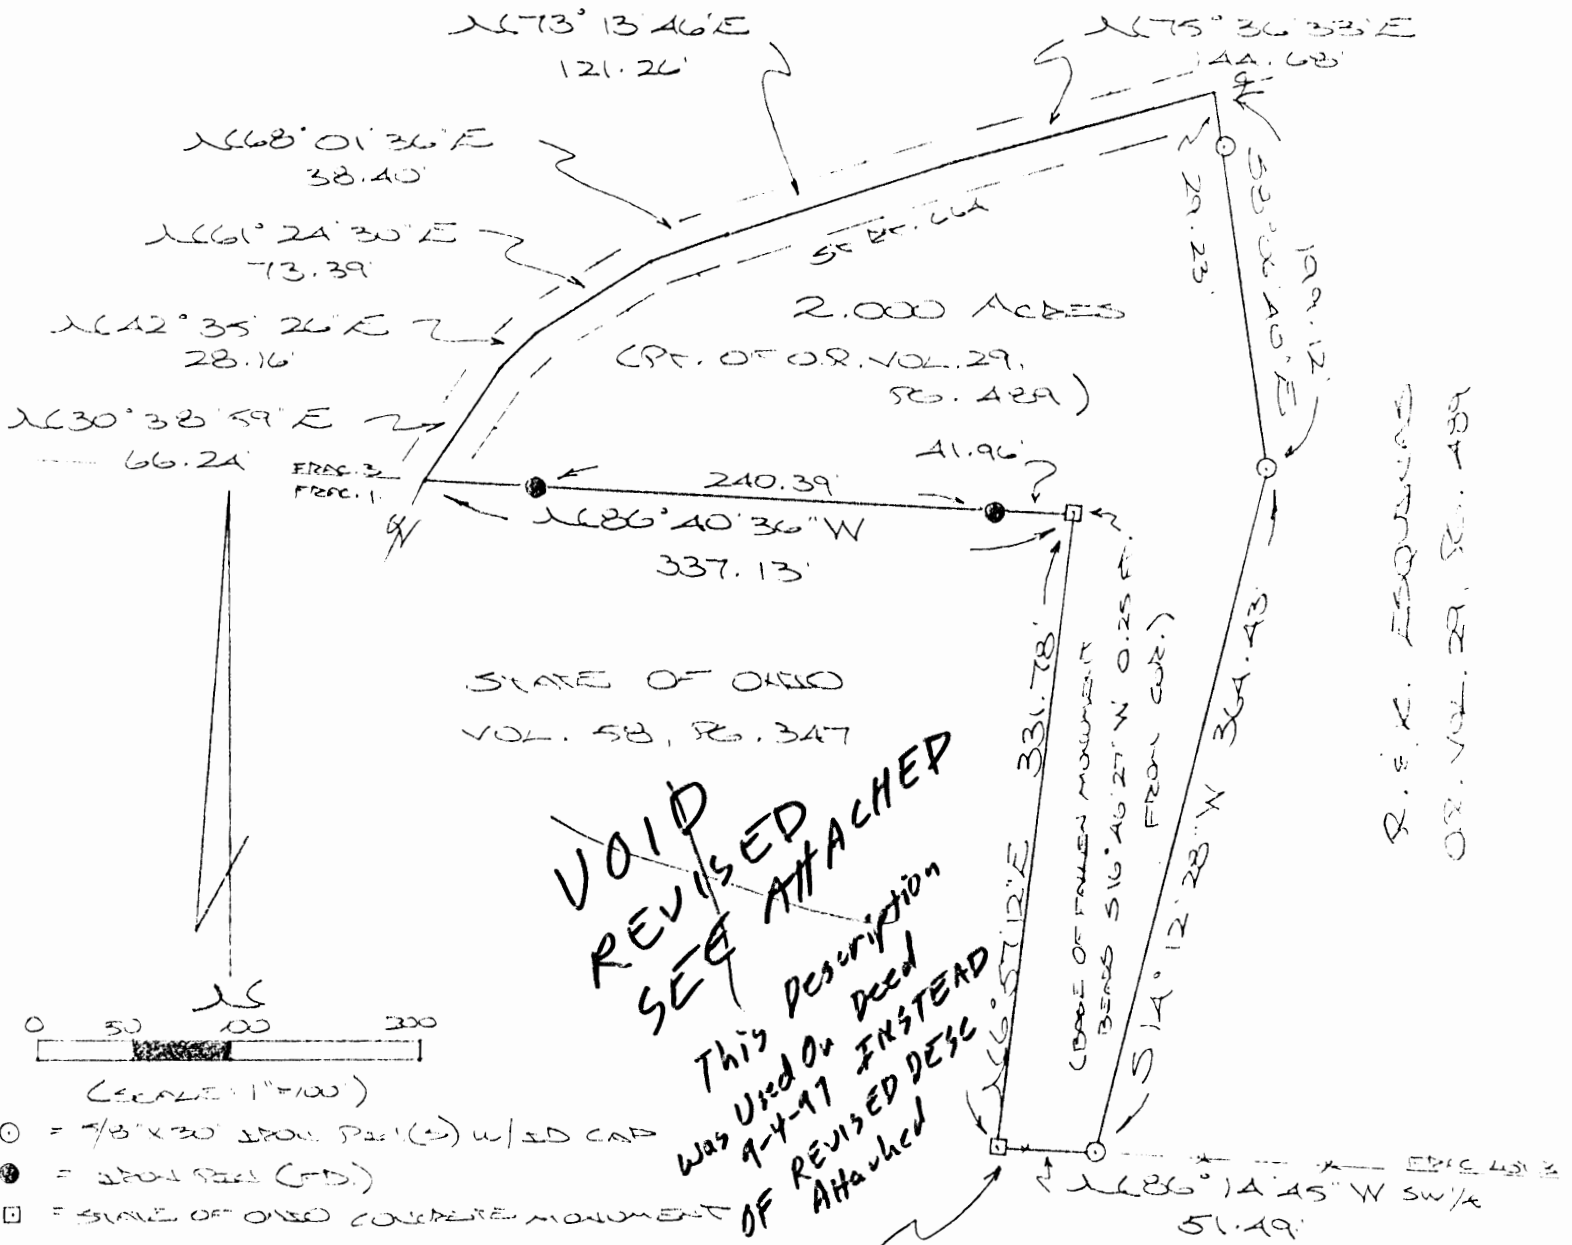 N73° 13' 46" E
121.26'
N75° 36' 33" E
144.68'
N68° 01' 36" E
38.40'
N61° 24' 30" E
73.39'
N42° 35' 26" E
28.16'
N30° 38' 59" E
66.24'
29.23'
199.12'
ST. RT. 664
2.000 ACRES
(PT. OF O.R. VOL. 29,
PG. 489)
41.96'
FRAC. 3
FRAC. 1
240.39'
N86° 40' 36" W
337.13'
R. & K. ESQUINAS
O.R. VOL. 29, PG. 489
STATE OF OHIO
VOL. 58, PG. 347
N6° 57' 12" E 331.78'
(BASE OF FALLEN MONUMENT
BEARS S16° 46' 27" W 0.25 FT.
FROM COR.)
S14° 12' 28" W 364.43'
VOID
REVISED
SEE ATTACHED
This Description
was Used On Deed
9-4-97 INSTEAD
OF REVISED DESC
Attached
N
0 50 100 200
(SCALE: 1"=100')
= 5/8" X 30" IRON PIN(S) W/ID CAP
= IRON PIN (FD.)
= STATE OF OHIO CONCRETE MONUMENT
SW 1/4
N86° 14' 45" W
51.49'